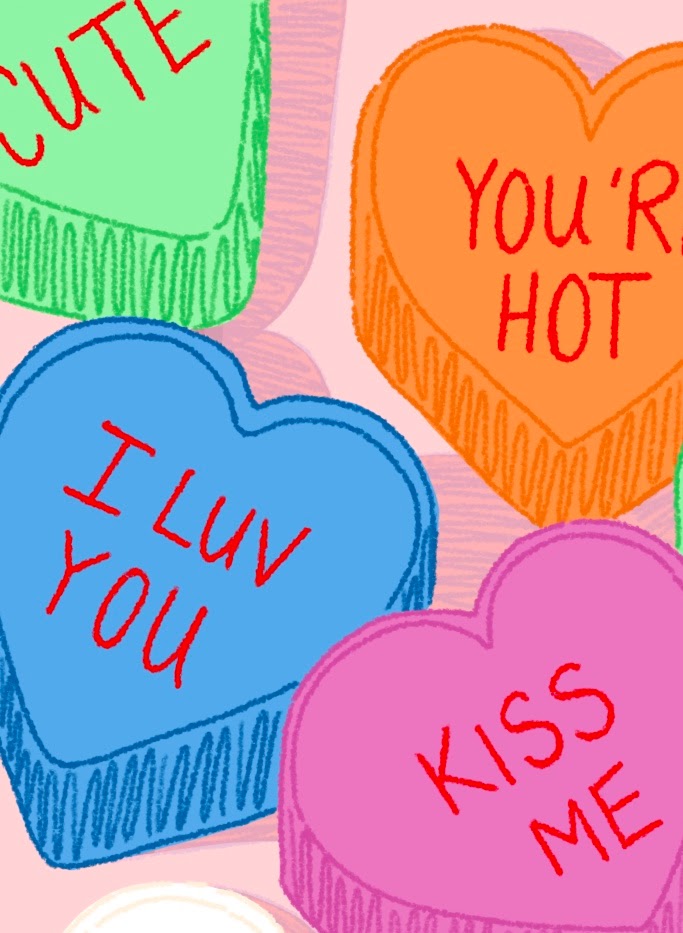 CUTE
YOU'R
HOT
I LUV
YOU
KISS
ME